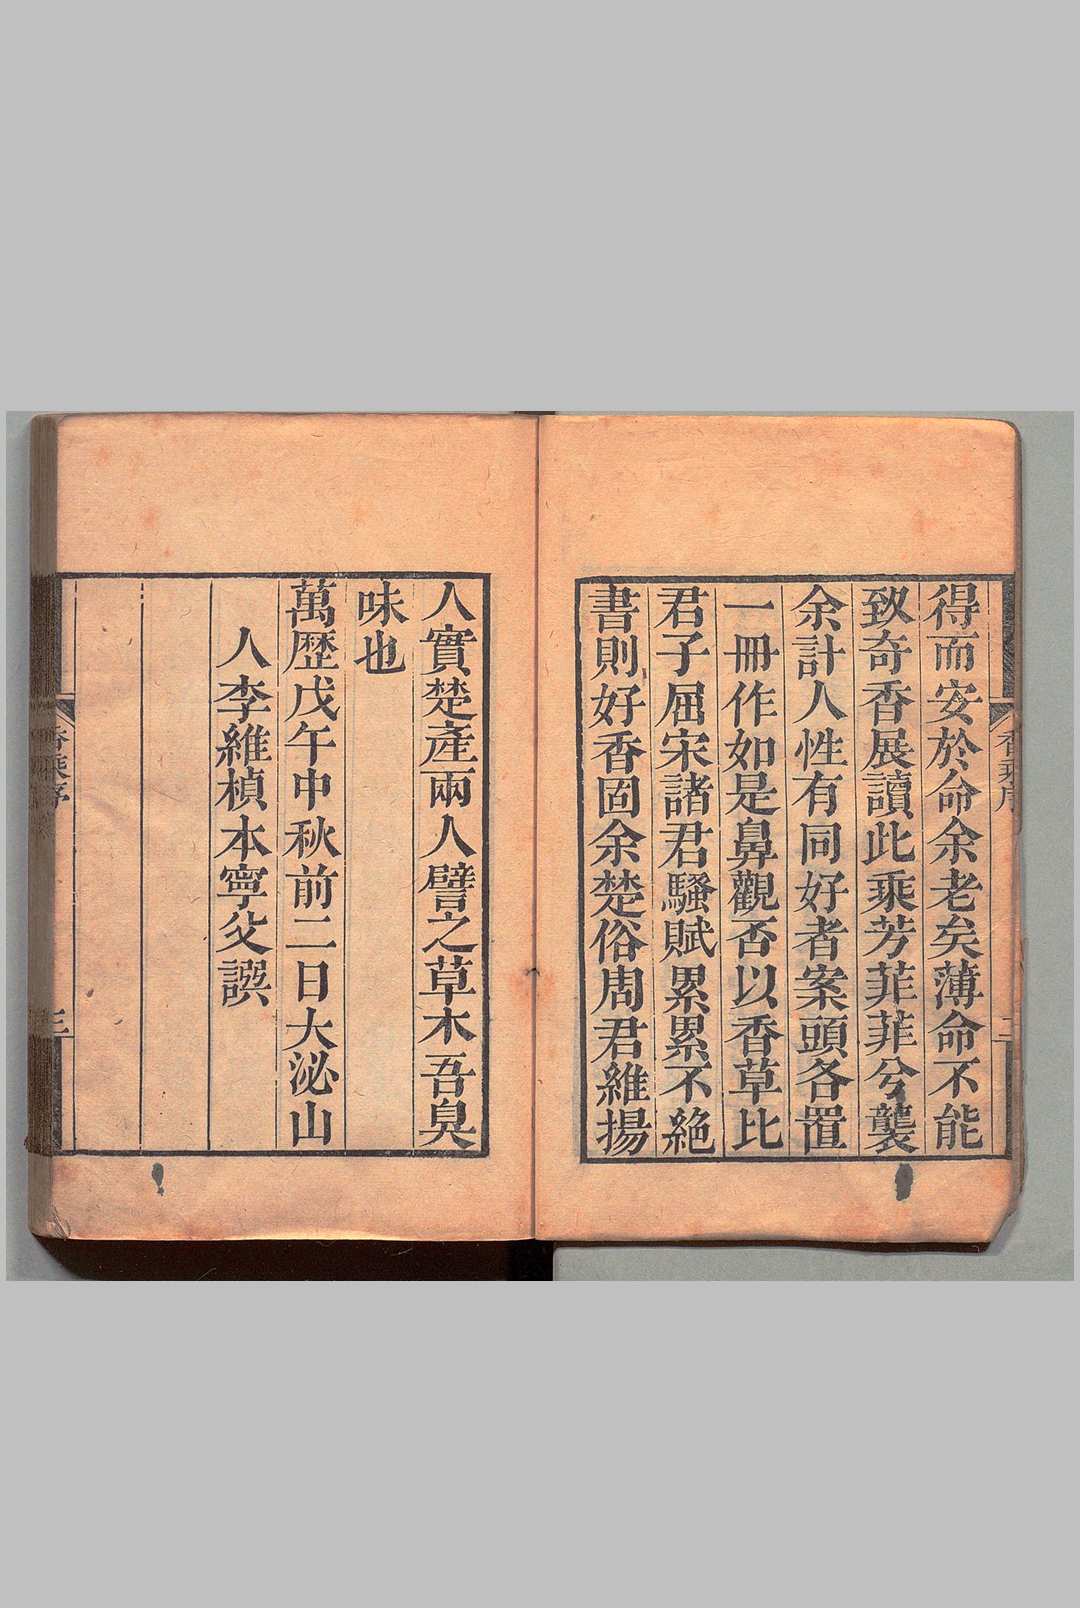 香乘序
二
得而安於命余老矣薄命不能
致奇香展讀此乘芳菲菲兮襲
余計人性有同好者案頭各置
一冊作如是鼻觀否以香草比
君子屈宋諸君騷賦累累不絕
書則好香固余楚俗周君維揚
人實楚產兩人譬之草木吾臭
味也
萬歷戊午中秋前二日大泌山
人李維楨本寧父譔
香乘序
三